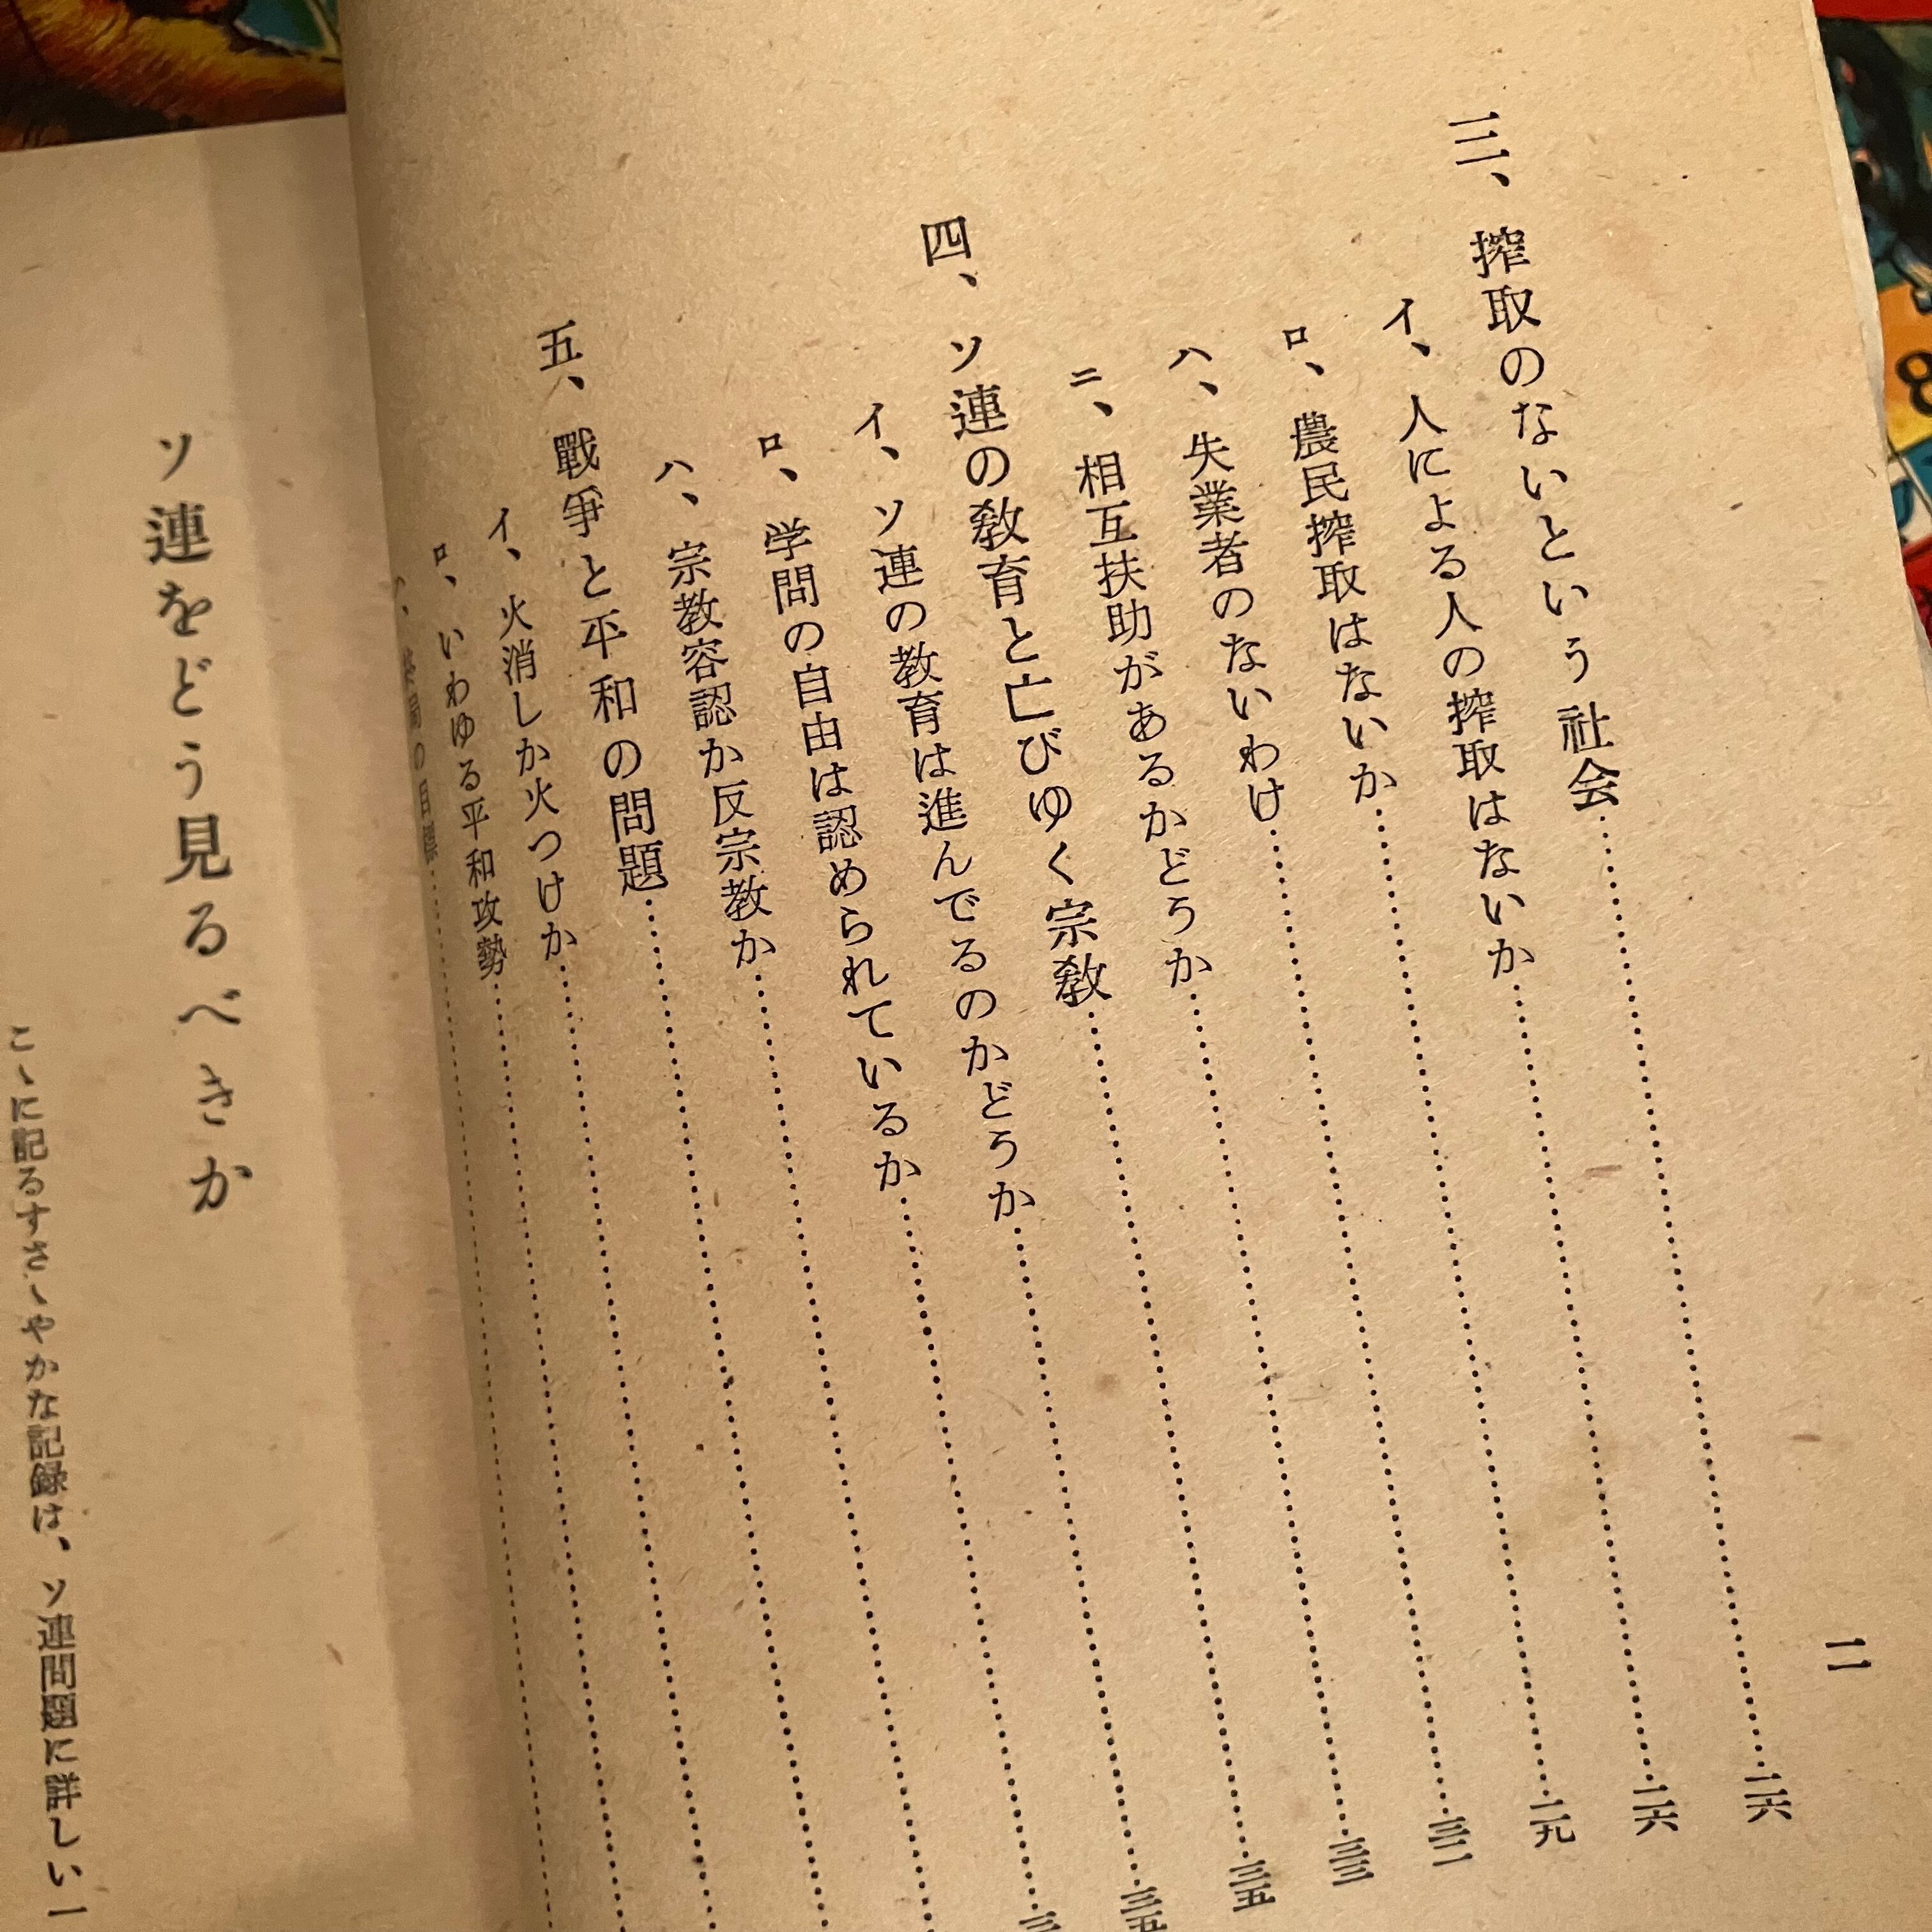 二
三、搾取のないという社会……二六
イ、人による人の搾取はないか……二六
ロ、農民搾取はないか……二九
ハ、失業者のないわけ……三一
ニ、相互扶助があるかどうか……三三
四、ソ連の敎育と亡びゆく宗敎……三五
イ、ソ連の教育は進んでるのかどうか……三五
ロ、学問の自由は認められているか……
ハ、宗教容認か反宗教か……
五、戰爭と平和の問題……
イ、火消しか火つけか……
ロ、いわゆる平和攻勢……
ソ連をどう見るべきか
こゝに記るすさゝやかな記録は、ソ連問題に詳しい一